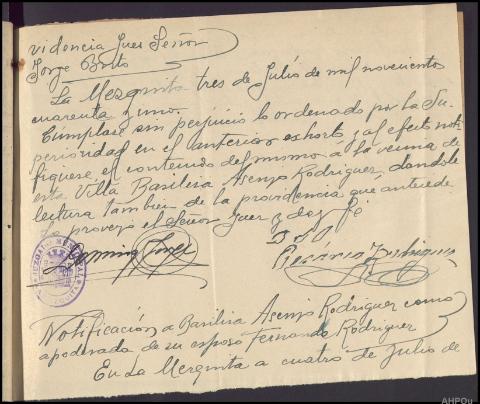 videncia Juez Señor
Jorge Brito
La Mezquita tres de Julio de mil novecientos
cuarenta y uno.
Cúmplase sin perjuicio lo ordenado por la Su-
perioridad en el anterior exhorto y al efecto noti
fíquese, el contenido del mismo a la vecina de
esta Villa Basilisa Asenjo Rodriguez, dandole
lectura tambien de la providencia que antecede
Lo proveyó el Señor Juez y doy fé
Domingo Jorge
D.S.O.
Rodriguez
JUZGADO MUNICIPAL
MEZQUITA
Notificación a Basilisa Asenjo Rodriguez como
apoderada de su esposo Fernando Rodriguez
En La Mezquita a cuatro de Julio de
AHPOu